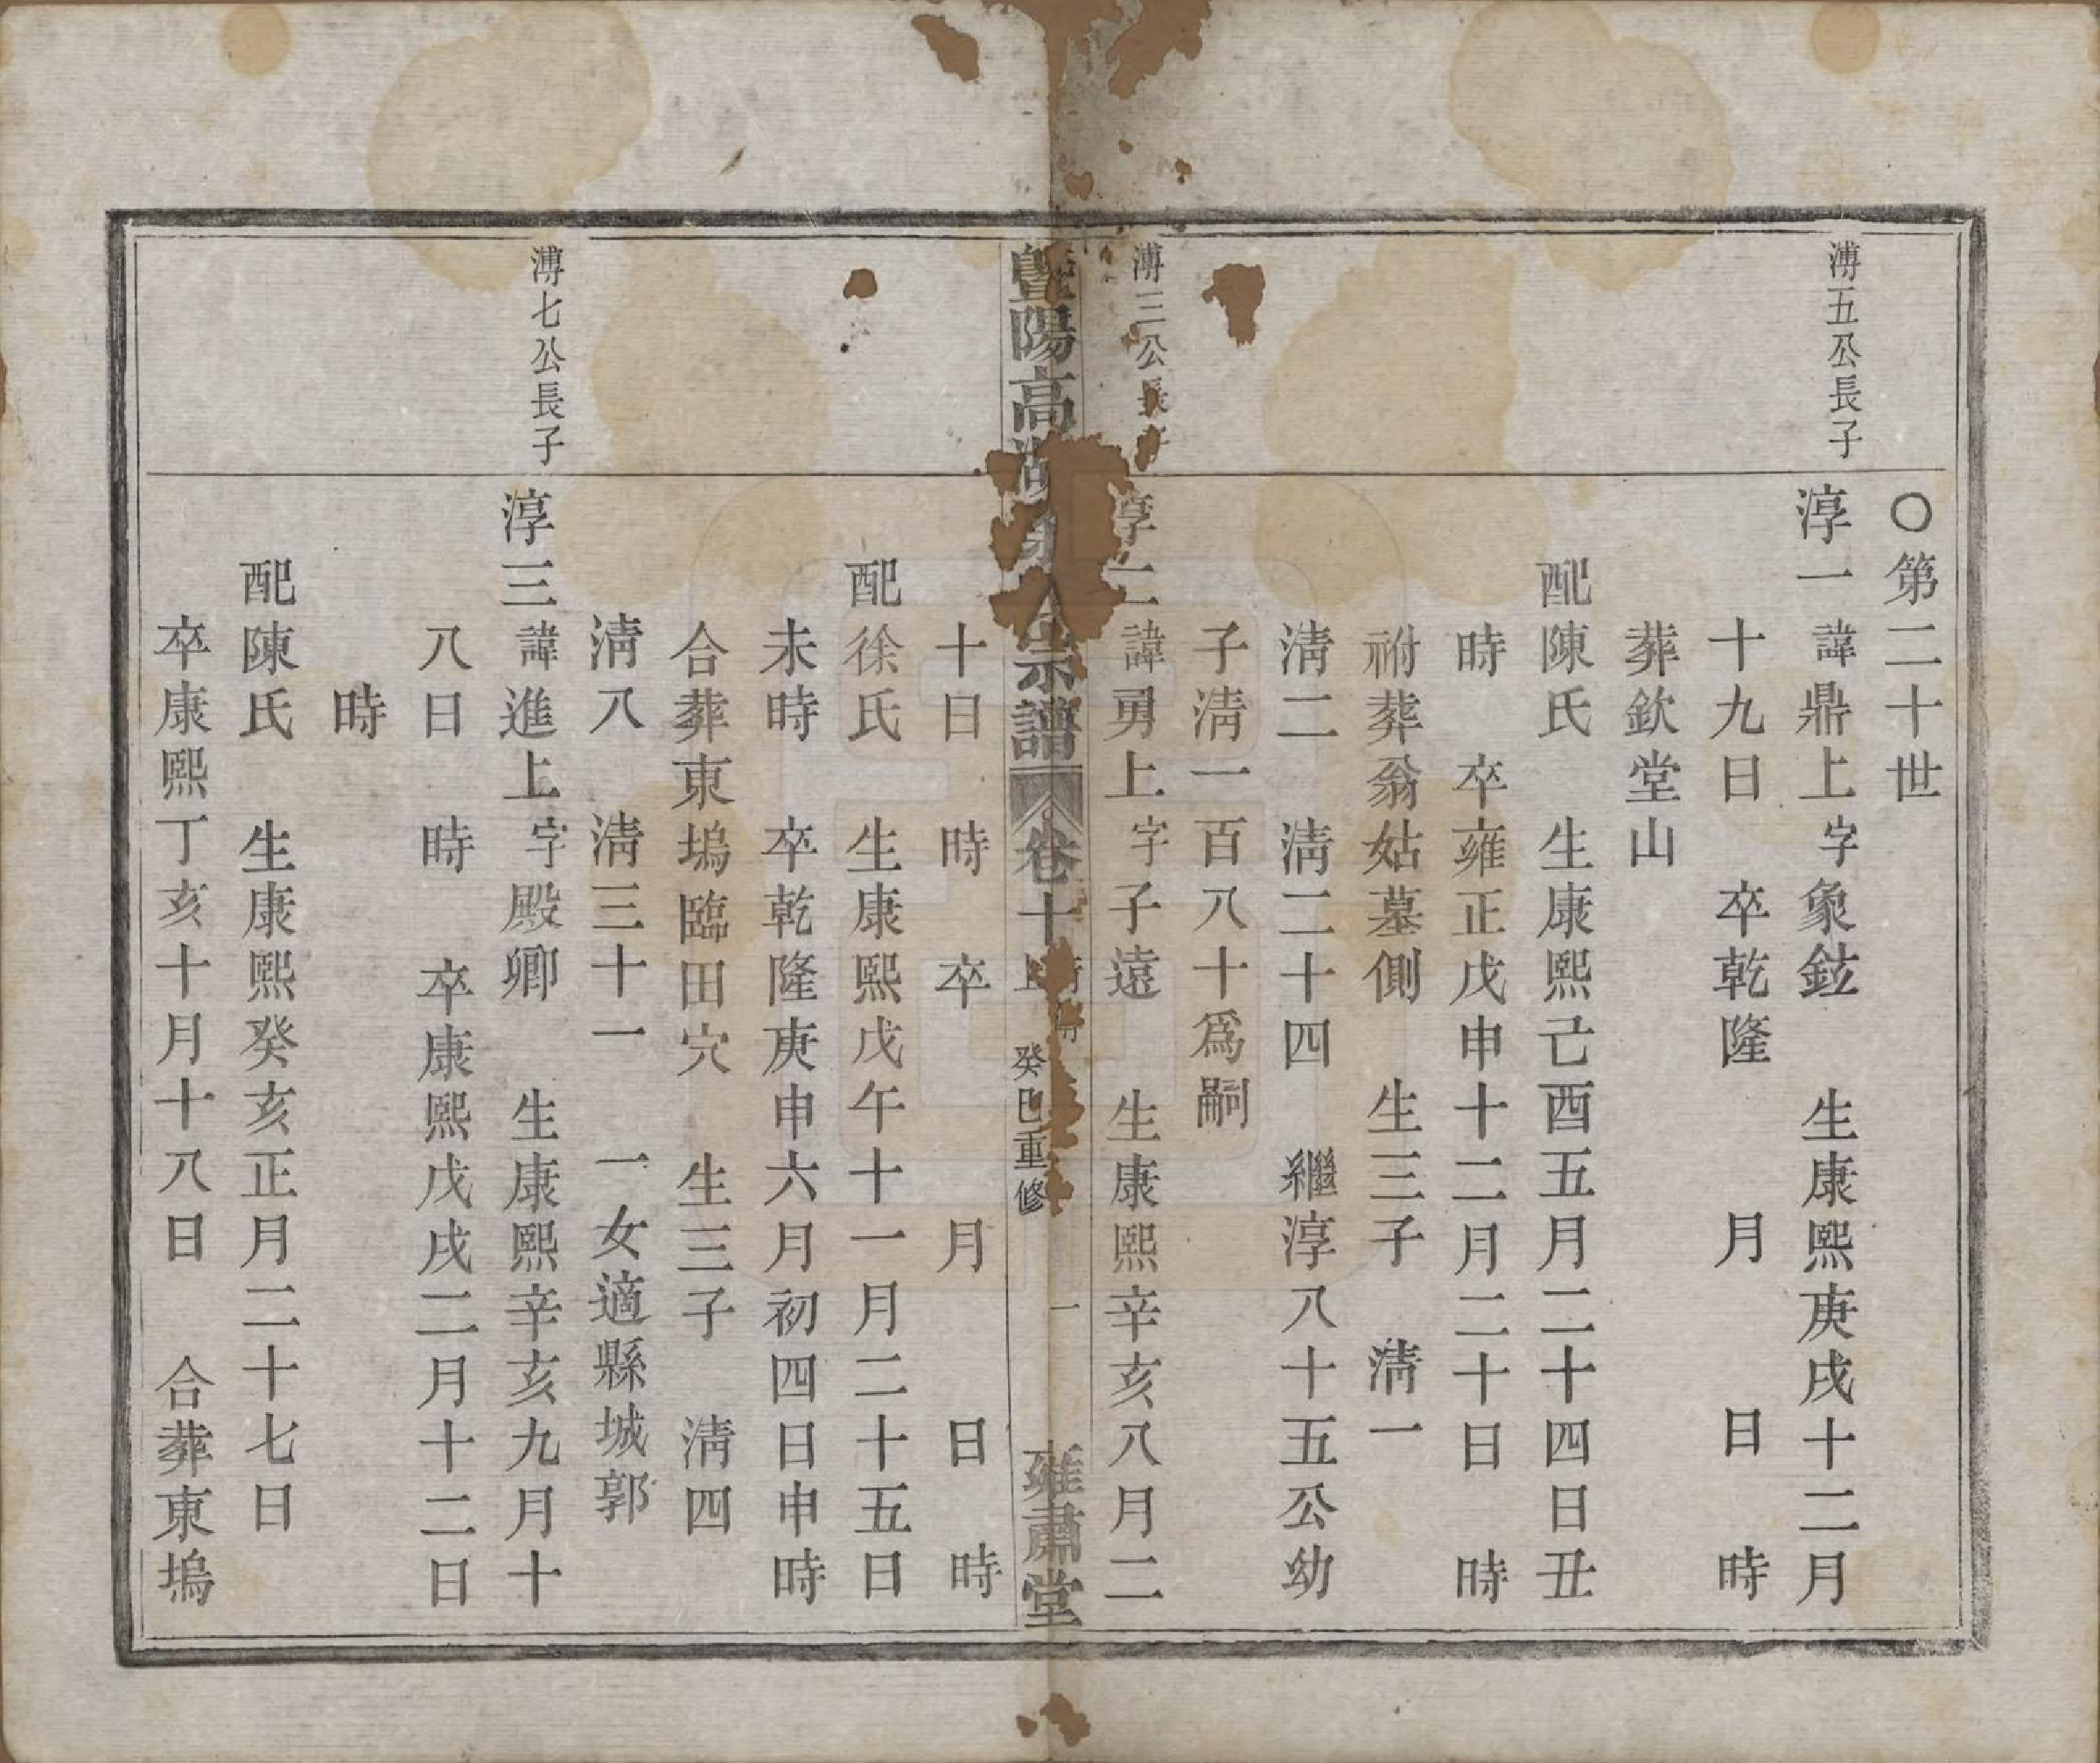 ○第二十世
溥五公長子
淳一諱鼎上字象鉉　生康熙庚戌十二月
十九日　卒乾隆　月　日　時
葬欽堂山
配陳氏　生康熙己酉五月二十四日丑
時　卒雍正戊申十二月二十日　時
祔葬翁姑墓側　生三子　淸一
淸二　淸二十四　繼淳八十五公幼
子淸一百八十爲嗣
溥三公長
淳二諱勇上字子遠　生康熙辛亥八月二
暨陽高湖　宗譜　卷十　癸巳重修　一　雍肅堂
十日　時　卒　月　日　時
配徐氏　生康熙戊午十一月二十五日
未時　卒乾隆庚申六月初四日申時
合葬東塢臨田穴　生三子　淸四
淸八　淸三十一　一女適縣城郭
溥七公長子
淳三諱進上字殿卿　生康熙辛亥九月十
八日　時　卒康熙戊戌二月十二日
時
配陳氏　生康熙癸亥正月二十七日
卒康熙丁亥十月十八日　合葬東塢